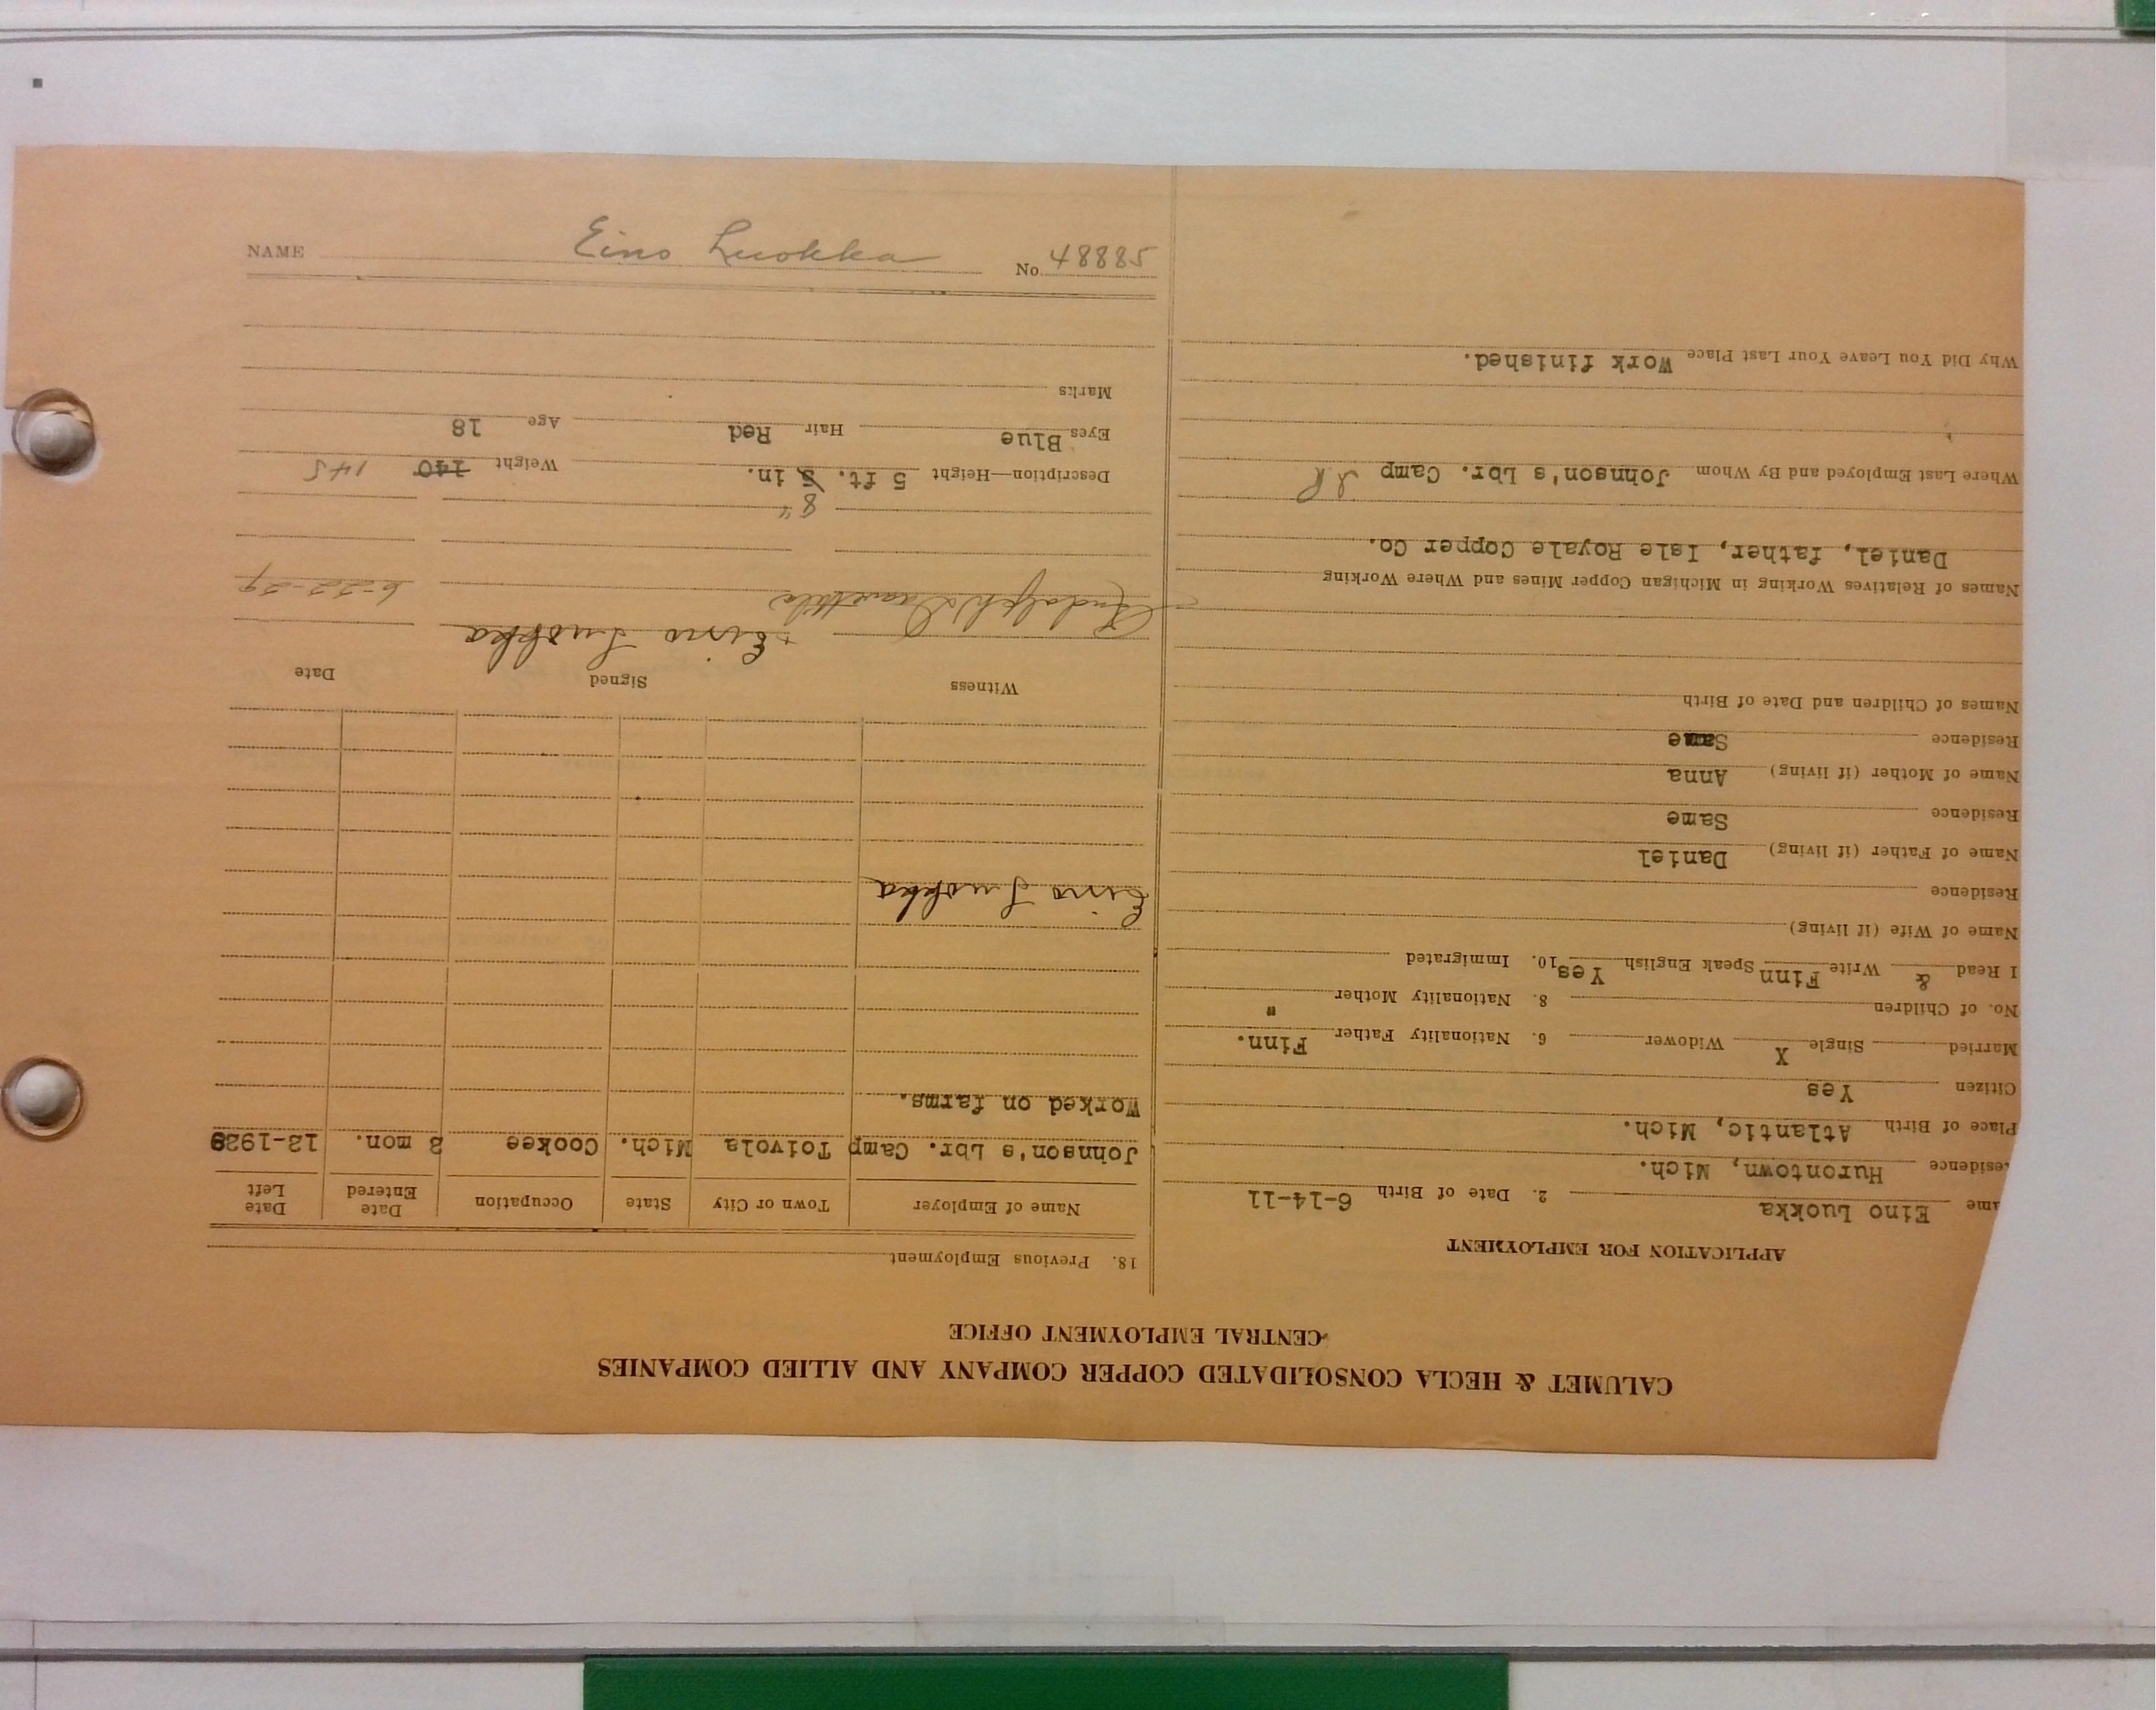 CALUMET & HECLA CONSOLIDATED COPPER COMPANY AND ALLIED COMPANIES
CENTRAL EMPLOYMENT OFFICE
APPLICATION FOR EMPLOYMENT
ame Eino Luokka 2. Date of Birth 6-14-11
esidence Hurontown, Mich.
Place of Birth Atlantic, Mich.
Citizen Yes
Married Single X Widower 6. Nationality Father Finn.
No. of Children 8. Nationality Mother "
I Read & Write Finn Speak English Yes 10. Immigrated
Name of Wife (if living)
Residence
Name of Father (if living) Daniel
Residence Same
Name of Mother (if living) Anna
Residence Same
Names of Children and Date of Birth
Names of Relatives Working in Michigan Copper Mines and Where Working
Daniel, father, Isle Royale Copper Co.
Where Last Employed and By Whom Johnson's Lbr. Camp
Why Did You Leave Your Last Place Work finished.
18. Previous Employment
Name of Employer Town or City State Occupation Date Entered Date Left
Johnson's Lbr. Camp Toivola Mich. Cookee 3 mon. 12-1928
Worked on farms.
Eino Luokka
Witness Signed Date
Eino Luokka
Rudolph 6-22-29
8"
Description—Height 5 ft. 5 in. Weight 140 145
Eyes Blue Hair Red Age 18
Marks
NAME Eino Luokka No. 48885